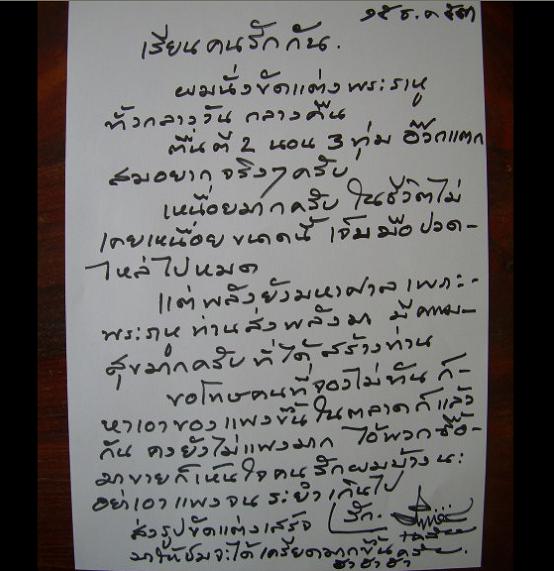 ๑๕ ธ.ค ๕๓
เรียน คนรักกัน.
ผมนั่งขัดแต่งพระราหู
ทั้งกลางวัน กลางคืน
ตื่นตี 2 นอน 3 ทุ่ม อ๊วกแตก
สมอยาก จริงๆ ครับ
เหนื่อยมากครับ ในชีวิตไม่
เคยเหนื่อย ขนาดนี้ เจ็บมือ ปวด-
ไหล่ไปหมด
แต่ พลังยังมหาศาล เพราะ-
พระราหู ท่านส่งพลังมา มีความ-
สุขมากครับ ที่ได้ สร้างท่าน
ขอโทษคนที่จองไม่ทัน ก็-
หาเอาของแพงขึ้น ในตลาดก็แล้ว
กัน คงยังไม่แพงมาก ไอ้พวกซื้อ-
มาขาย ก็เห็นใจคนรักผมบ้างนะ
อย่าเอาแพงจน ระยำ เกินไป
ส่งรูปขัดแต่งเสร็จ รัก.
มาให้ชมจะได้ เครียดมากขึ้น
ฮ่า ฮ่า ฮ่า